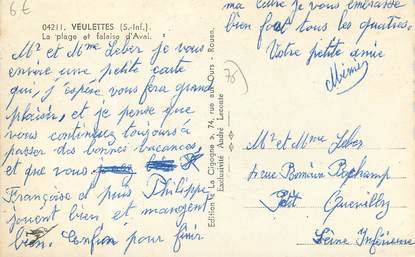 6€
04211. VEULETTES (S.-Inf.).
La plage et falaise d'Aval.
Mr et Mme Leber je vous
envoie une petite carte
qui, j'espère vous fera grand
plaisir, et je pense que
vous continuez toujours à
passer des bonnes vacances,
et que vous
Françoise et puis Philippe
jouent bien et mangent
bien. Enfin pour finir
ma lettre je vous embrasse
bien fort tous les quatres.
Votre petite amie
Mimie
76
Edition " La Cigogne ", 74, rue aux Ours - Rouen.
Exclusivité André Lecoste
Mr et Mme Leber
rue Romain Rochamp
Petit Quevilly
Seine Inférieure